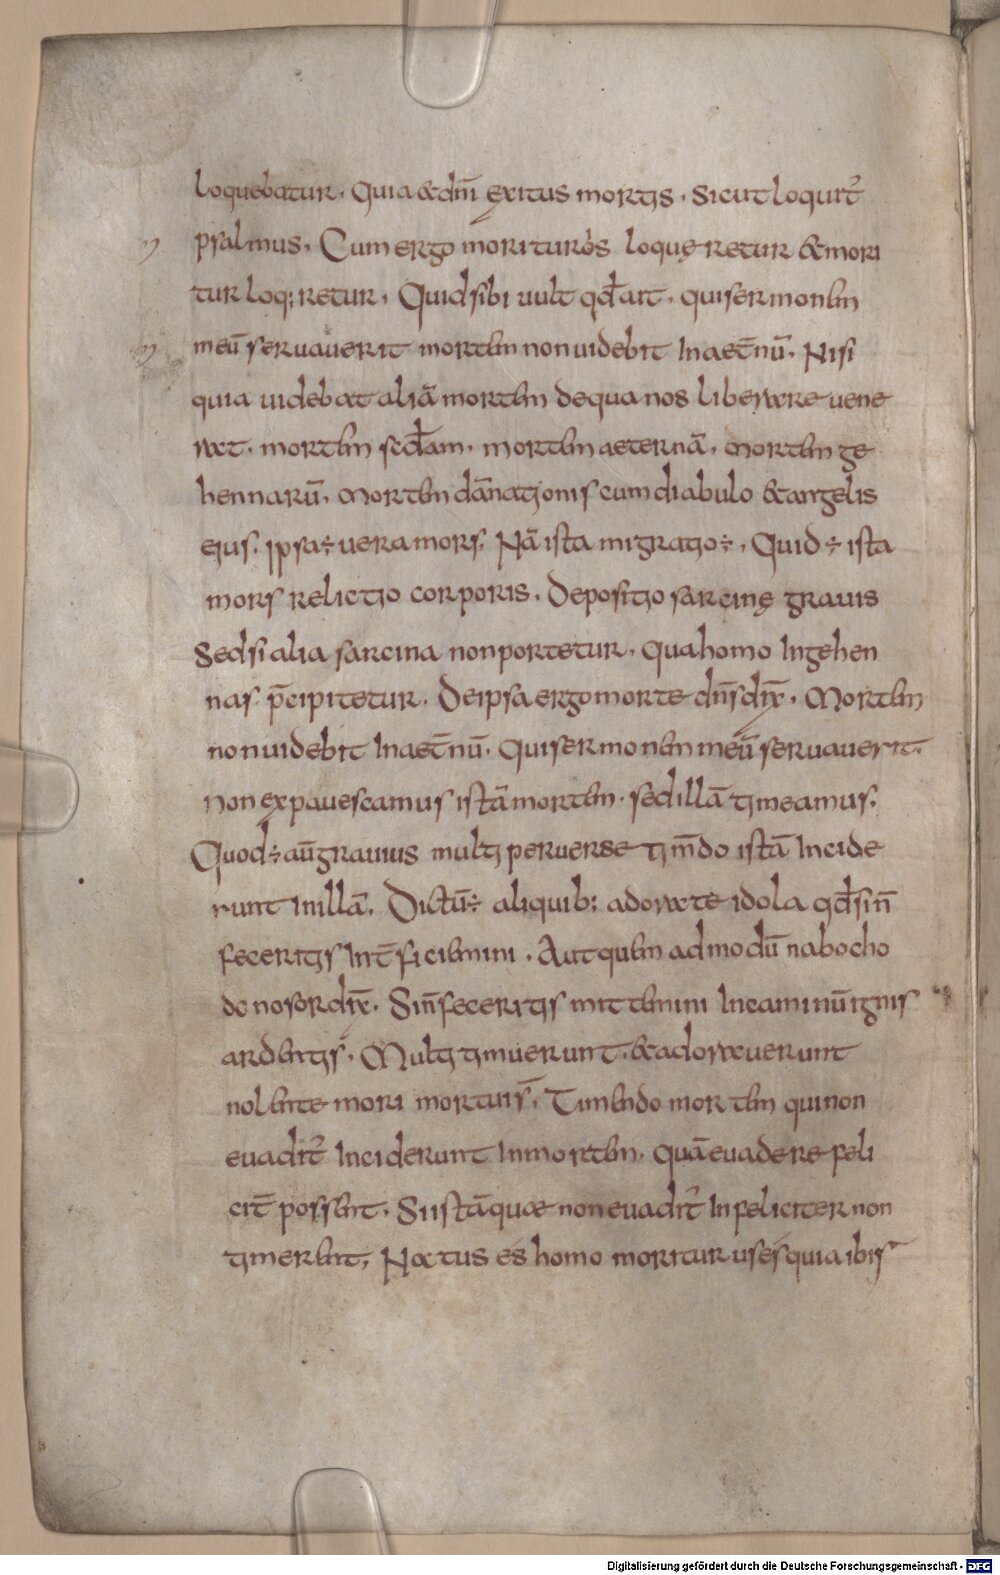 loquebatur. Quia & dn̄i exitus mortis. sicut loquit̄
psalmus. Cum ergo moriturȯs loqueretur & mori
tur loq;retur. Quid sibi uult qđ ait. qui sermonem
meū seruauerit mortem non uidebit In aet̄nū. Nisi
quia uidebat aliā mortem de qua nos liberare uene
rat. mortem scđam. mortem aeternā. mortem ge
hennarū. mortem dānationis cum diabulo & angelis
ejus. ipsa ÷ uera mors. Nā ista migratio ÷. Quid ÷ ista
mors relictio corporis. Depositio sarcinę grauis
Sed si alia sarcina non portetur. qua homo In gehen
nas p̄cipitetur. De ipsa ergo morte dn̄s dix̄. Mortem
non uidebit In aet̄nū. qui sermonem meū seruauerit.
non expauescamus istā mortem. sed illā timeamus.
Quod ÷ aūt grauius multi peruerse tim̄do istā Incide
runt In illā. Dictū ÷ aliquib; adorate idola qđ si n̄
feceritis Int̄ficiemini. Aut quem admodū nabocho
donosor dix̄. Si n̄ feceritis mittemini In caminū ignis
ardentis. Multi timuerunt. & adorauerunt
nolente mori mortui s̄. Timendo mortem qui non
euadit̄ Inciderunt In mortem. quā euadere feli
cit̄ possent. Si istā quae non euadit̄ Infeliciter non
timerent. Natus es homo moriturus es quia ibis
Digitalisierung gefördert durch die Deutsche Forschungsgemeinschaft - DFG